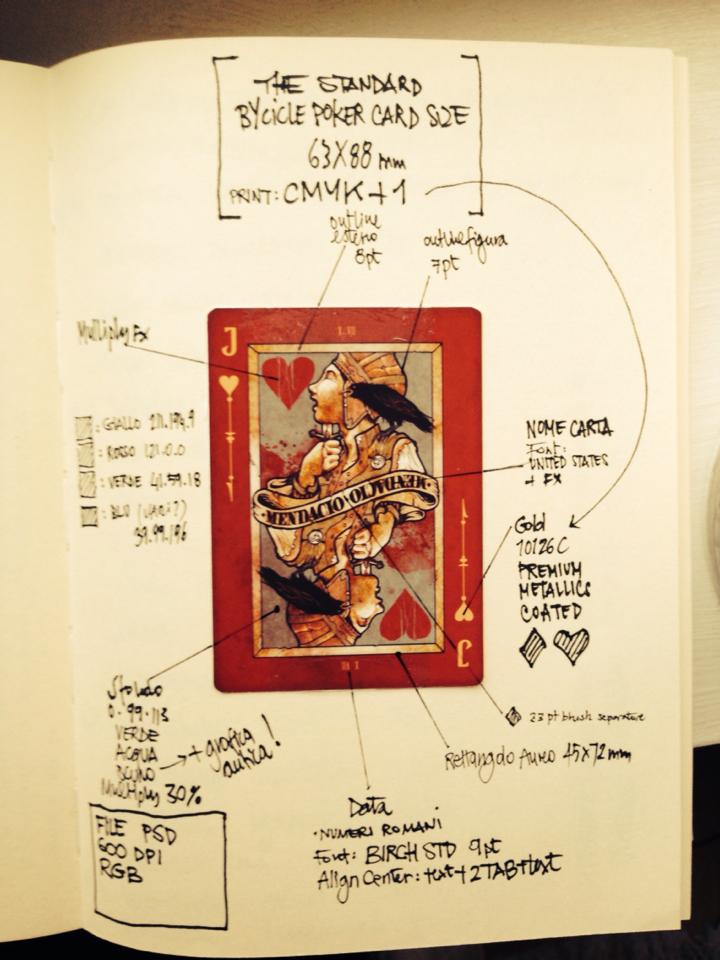 THE STANDARD
BYCICLE POKER CARD SIZE
63X88 mm
PRINT: CMYK+1
outline
esterno
8pt
outline figura
7pt
Multiply Fx
J
I.VII
: GIALLO 211.194.9
: ROSSO 121.0.0
: VERDE 41.59.18
: BLU (VARI?)
39.99.196
NOME CARTA
Font:
UNITED STATES
+ FX
MENDACIO
MENDACIO
Gold
10126 C
PREMIUM
METALLICS
COATED
J
Sfondo
0.99.113
VERDE
ACQUA
Multiply 30%
+ grafica
antica!
23 pt brush separatore
Rettangolo Aureo 45x72mm
Data
• NUMERI ROMANI
Font: BIRCH STD 9pt
Align Center: text+2TAB+text
FILE PSD
600 DPI
RGB